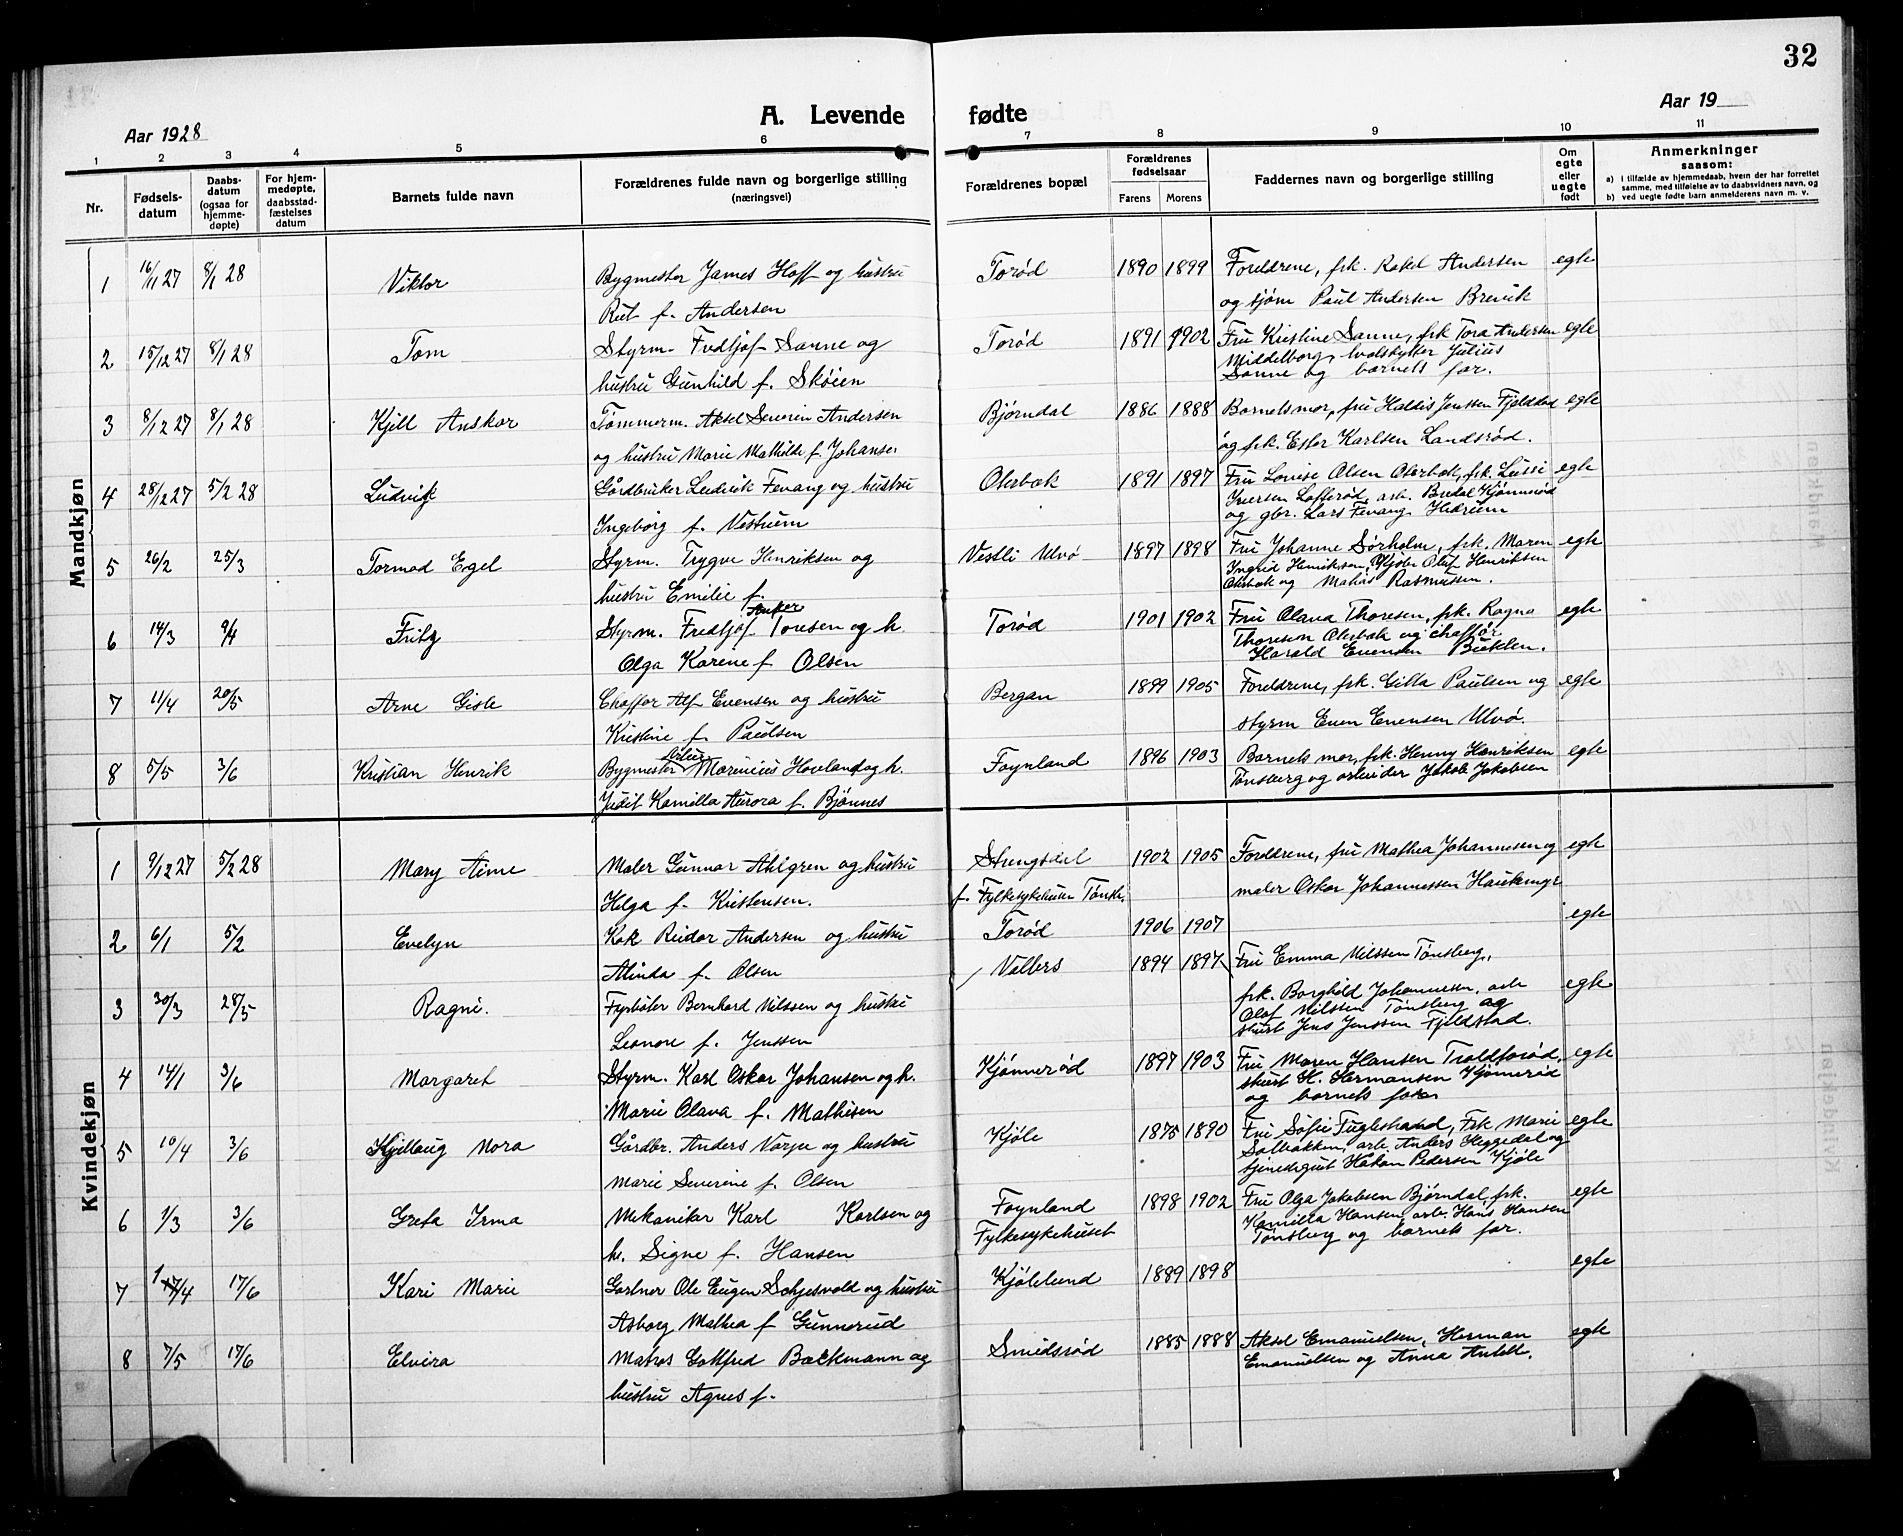 32
Aar 1928
A. Levende fødte
Aar 19
1 2 3 4 5 6 7 8 9 10 11
Nr.
Fødsels-
datum
Daabs-
datum
(ogsaa for
hjemme-
døpte)
For hjem-
medøpte,
daabsstad-
fæstelses
datum
Barnets fulde navn
Forældrenes fulde navn og borgerlige stilling
(næringsvei)
Forældrenes bopæl
Forældrenes
fødselsaar
Farens Morens
Faddernes navn og borgerlige stilling
Om
egte
eller
uegte
født
Anmerkninger
saasom:
a) i tilfælde av hjemmedaab, hvem der har forrettet
samme, med tilføielse av to daabsvidners navn, og
b) ved uegte fødte barn anmelderens navn m. v.
Mandkjøn
1 16/11 27 8/1 28 Viktor Bygmester James Hoff og hustru Torød 1890 1899 Foreldrene, frk. Rakel Andersen egte
Rut f. Andersen og sjøm Paul Andersen Brevik
2 15/12 27 8/1 28 Tom Styrm. Fridtjof Sanne og Torød 1891 1902 Fru Kristine Sanne, frk Tora Andersen egte
hustru Gunhild f. Skøien Middelborg, hvalskytter Julius
Sanne og barnets far.
3 8/12 27 8/1 28 Kjell Anskar Tømmerm. Aksel Severin Andersen Bjørndal 1886 1888 Barnets mor, fru Haldis Jenssen Fjeldstad egte
og hustru Marie Mathilde f. Johansen og frk. Ester Karlsen Landsrød.
4 28/12 27 5/2 28 Ludvik Gårdbruker Ludvik Fevang og hustru Oterbæk 1891 1897 Fru Lovise Olsen Oterbæk, frk. Lussi egte
Ingeborg f. Vestrum Iversen Lofterød, arb. Bredal Kjønnerød
og gbr. Lars Fevang Hedrum
5 26/2 25/3 Tormod Egel Styrm. Trygve Henriksen og Vestli Ulvø 1897 1898 Fru Johanne Sørholm, frk. Maren egte
hustru Emilie f. Ingrid Henriksen, skjøler Oluf Henriksen
Oterbæk og Mathis Rasmussen.
6 14/3 9/4 Fritz Styrm. Fredtjof Anker Toresen og h. Torød 1901 1902 Fru Olava Thoresen, frk. Ragna egte
Olga Karene f Olsen Thoresen Oterbæk og chaffør
Harald Evensen Buklen.
7 11/4 20/5 Arne Gisle Chaffør Alf Evensen og hustru Bergan 1899 1905 Foreldrene, frk. Gitta Paulsen og egte
Kristine f. Paulsen styrm Even Evensen Ulvø.
8 5/5 3/6 Kristian Henrik Bygmester Artur Marinius Hovland og h. Føynland 1896 1903 Barnets mor, frk. Henny Henriksen egte
Judit Kamilla Aurora f. Bjønnes Tønsberg og arbeider Jakob Jakobsen
Kvindekjøn
1 9/12 27 5/2 28 Mary Aime Maler Gunnar Ahlgren og hustru Strengsdal 1902 1905 Foreldrene, fru Mathea Johannesen og egte
Helga f. Kristensen. f. Fylkesykehuset Tønsb. maler Oskar Johannessen Haukemyr
2 6/1 5/2 Evelyn Kok Reidar Andersen og hustru Torød 1906 1907 egte
Alinda f. Olsen
3 30/3 28/5 Ragni. Fyrbøter Bernhard Nilssen og hustru Valbers 1894 1897 Fru Emma Nilssen Tønsberg, egte
Leonore f. Jenssen frk. Borghild Johannesen, arb
Olaf Nilssen Tønsberg og
stuert Jens Jenssen Fjeldstad.
4 14/1 3/6 Margaret Styrm. Karl Oskar Johansen og h. Kjønnerød 1897 1903 Fru Maren Hansen Troldforød, egte
Marie Olava f. Mathisen stuert H. Hermansen Kjønnerød
og barnets far
5 10/4 3/6 Kjellaug Nora Gårdbr. Anders Varpe og hustru Kjøle 1875 1890 Fru Sofie Fuglestrand, Frk Marie egte
Marie Severine f. Olsen Solbakken, arb. Anders Heggedal og
tjenestegut Håkon Pedersen Kjøle
6 1/3 3/6 Greta Irma Mekaniker Karl Karlsen og Føynland 1898 1902 Fru Olga Jakobsen Bjørndal, frk. egte
h. Signe f. Hansen Fylkesykehuset Kamilla Hansen, arb. Hans Hansen
Tønsberg og barnets far.
7 17/4 17/6 Kari Marie Gartner Ole Eugen Schjesvold og hustru Kjølelund 1889 1898 egte
Asborg Mathea f Gunnerud
8 7/5 17/6 Elvira Matros Gotfred Backmann og Smidsrød 1885 1888 Aksel Emanuelsen, Herman egte
hustru Agnes f. Emanuelsen og Anna Antell.